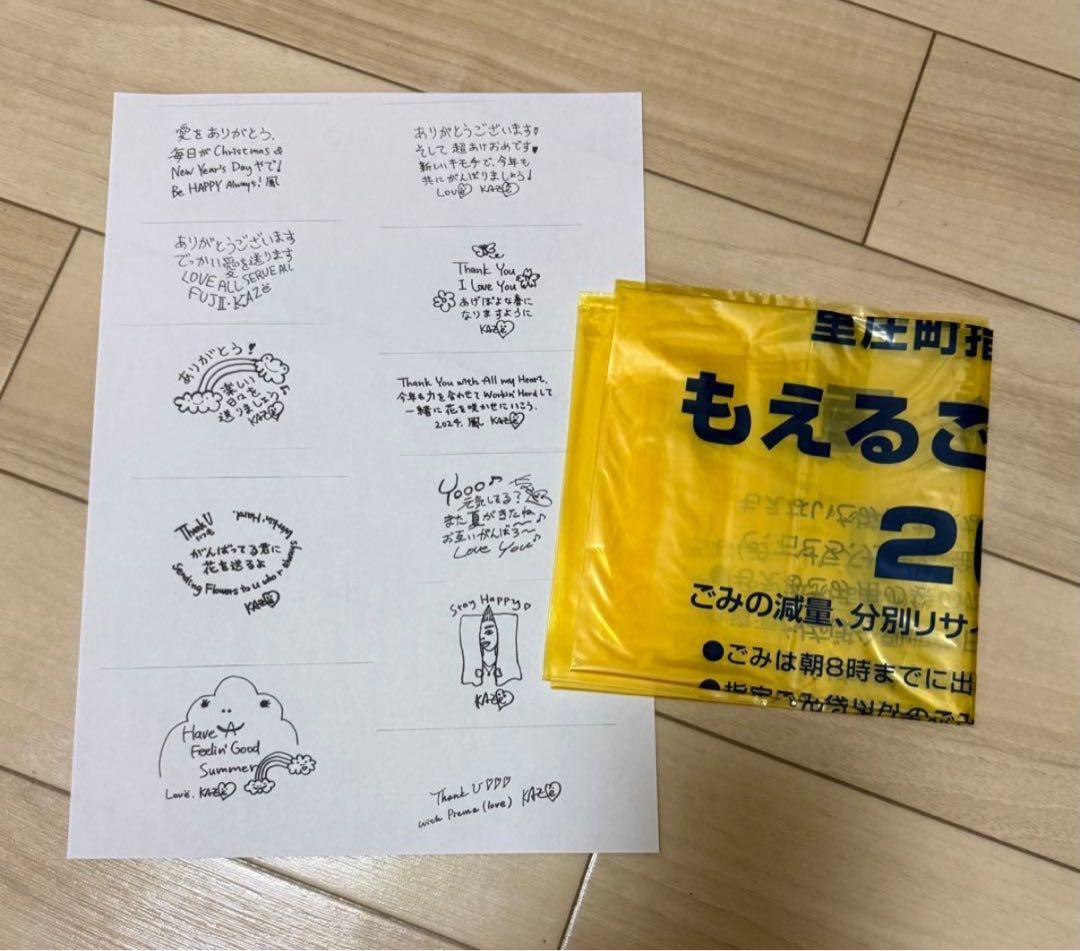 愛をありがとう。
毎日が Christmas &
New Year's Day やで!
Be HAPPY Always! 風
ありがとうございます
でっかい愛を送ります
LOVE ALL SERVE ALL
FUJII・KAZE
ありがとう!
楽しい
日々を
送りましょう♪
KAZE
Thank U
がんばってる君に
花を送るよ
Sending Flowers to U who r always
Workin' Hard.
KAZE
Have A
Feelin' Good
Summer
Love. KAZE
ありがとうございます
そして 超あけおめです♥
新しいキモチで、今年も
共にがんばりましょう!
Love KAZE
Thank You
I Love You
あげぽよな春に
なりますように
KAZE
Thank You with All my Heart,
今年も力を合わせて Workin' Hard して
一緒に花を咲かせにいこう。
2024. 風 KAZE
Yooo♪
元気してる?
また夏がきたね♪
お互いがんばろ〜
Love You♪
Stay Happy
KAZE
Thank U♡♡♡
with Prema (love) KAZE
里庄町指
もえるご
2
ごみの減量、分別リサイ
●ごみは朝8時までに出
●指定ごみ袋以外のごみ